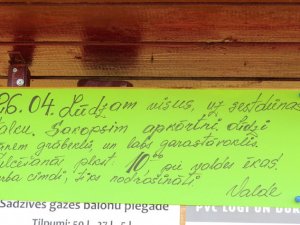 26.04. Lūdzam visus, uz sestdienas
talku. Sakopsim apkārtni.
ņem grābekli, un labs garastāvoklis.
plkst 10⁰⁰ pie valdes ēkas.
cimdi, tiks nodrošināti.
Valde
Sadzīves gāzes balonu piegāde
Tilpumi: 50 l, 27 l, 5 l
PVC LOGI UN DUR